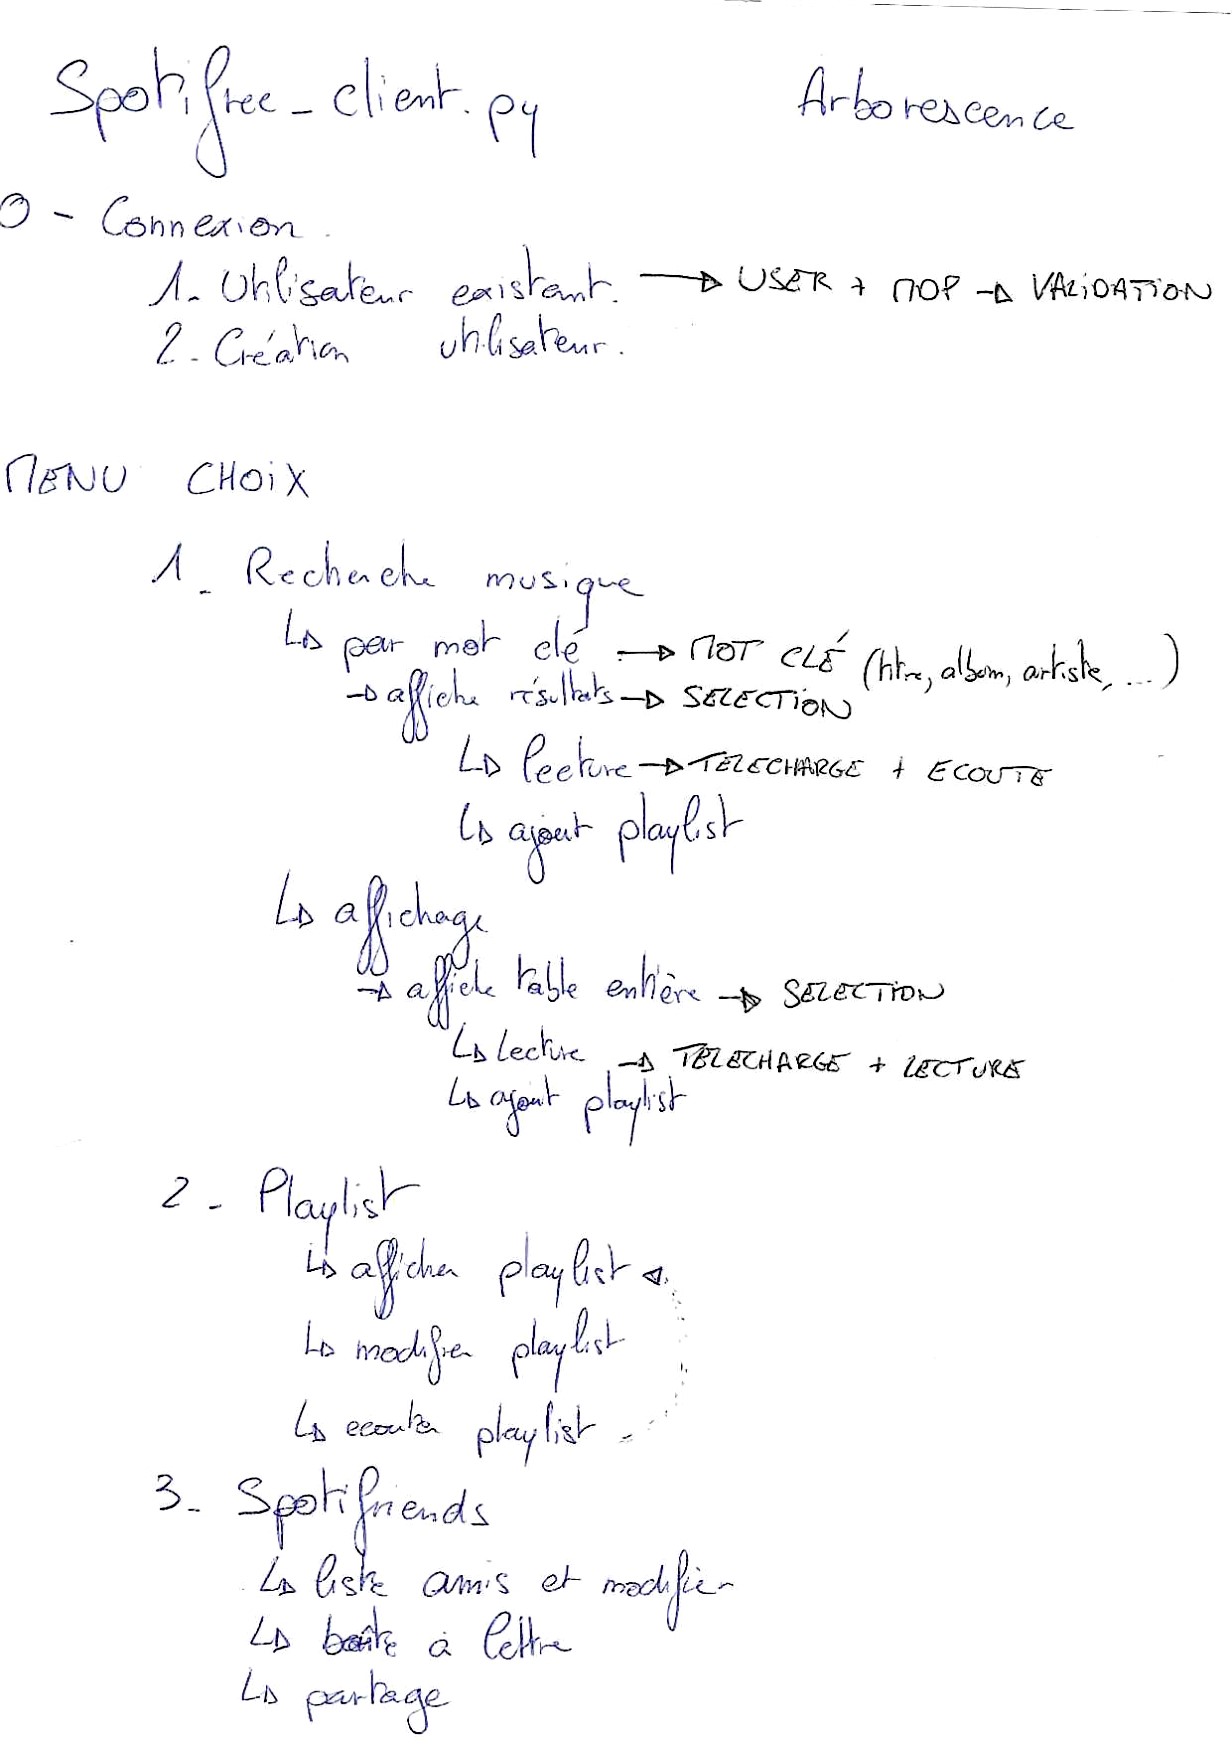 Spotifree_client.py Arborescence
0 - Connexion.
1. Utilisateur existant. → USER + MDP → VALIDATION
2. Création utilisateur.
MENU CHOIX
1_ Recherche musique
↳ par mot clé → MOT CLÉ (titre, album, artiste, ...)
→ affiche résultats → SELECTION
↳ lecture → TELECHARGE + ECOUTE
↳ ajout playlist
↳ affichage
→ affiche table entière → SELECTION
↳ lecture → TELECHARGE + LECTURE
↳ ajout playlist
2 - Playlist
↳ afficher playlist
↳ modifier playlist
↳ ecouter playlist
3_ Spotifriends
↳ liste amis et modifier
↳ boîte à lettre
↳ partage